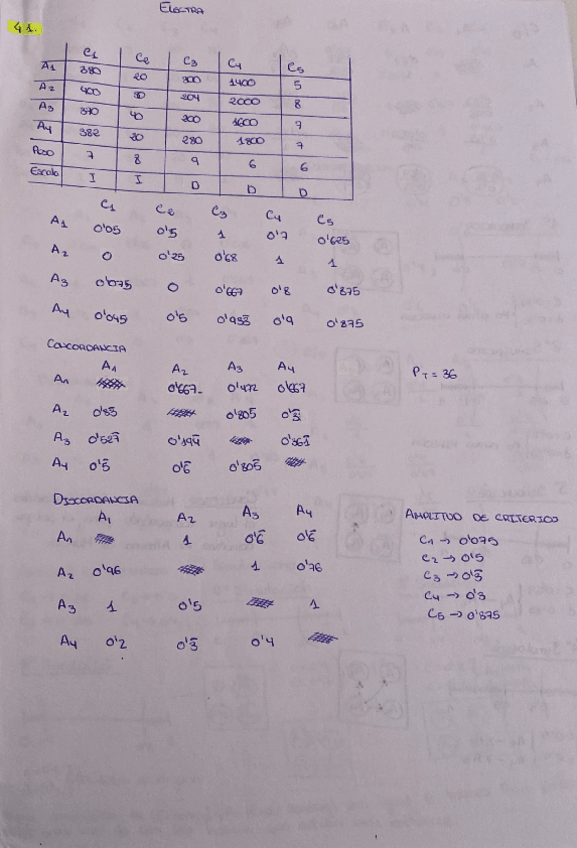 ELECTRA
41.
C1 C2 C3 C4 C5
A1 380 20 300 1400 5
A2 400 30 204 2000 8
A3 370 40 200 1600 7
A4 382 20 280 1800 7
PESO 7 8 9 6 6
Escala I I D D D
C1 C2 C3 C4 C5
A1 0'05 0'5 1 0'7 0'625
A2 0 0'25 0'68 1 1
A3 0'075 0 0'667 0'8 0'875
A4 0'045 0'5 0'933 0'9 0'875
CONCORDANCIA
A1 A2 A3 A4
A1 0'667 0'472 0'667
A2 0'33 0'805 0'3
A3 0'527 0'194 0'361
A4 0'5 0'6 0'805
PT = 36
DISCORDANCIA
A1 A2 A3 A4
A1 1 0'6 0'6
A2 0'96 1 0'76
A3 1 0'5 1
A4 0'2 0'3 0'4
AMPLITUD DE CRITERIOS
C1 → 0'075
C2 → 0'5
C3 → 0'3
C4 → 0'3
C5 → 0'375